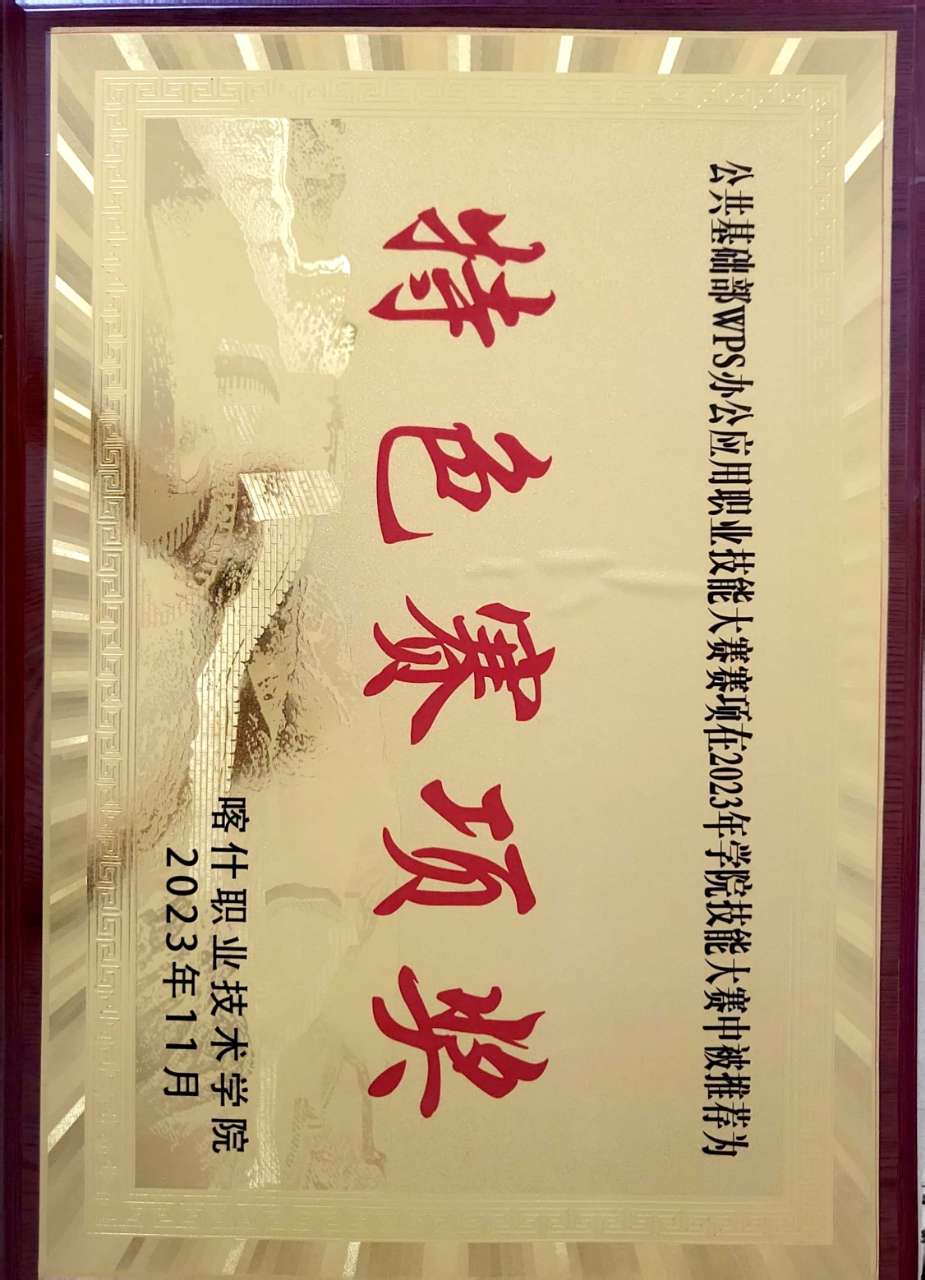 公共基础部WPS办公应用职业技能大赛赛项在2023年学院技能大赛中被推荐为
特色赛项奖
喀什职业技术学院
2023年11月